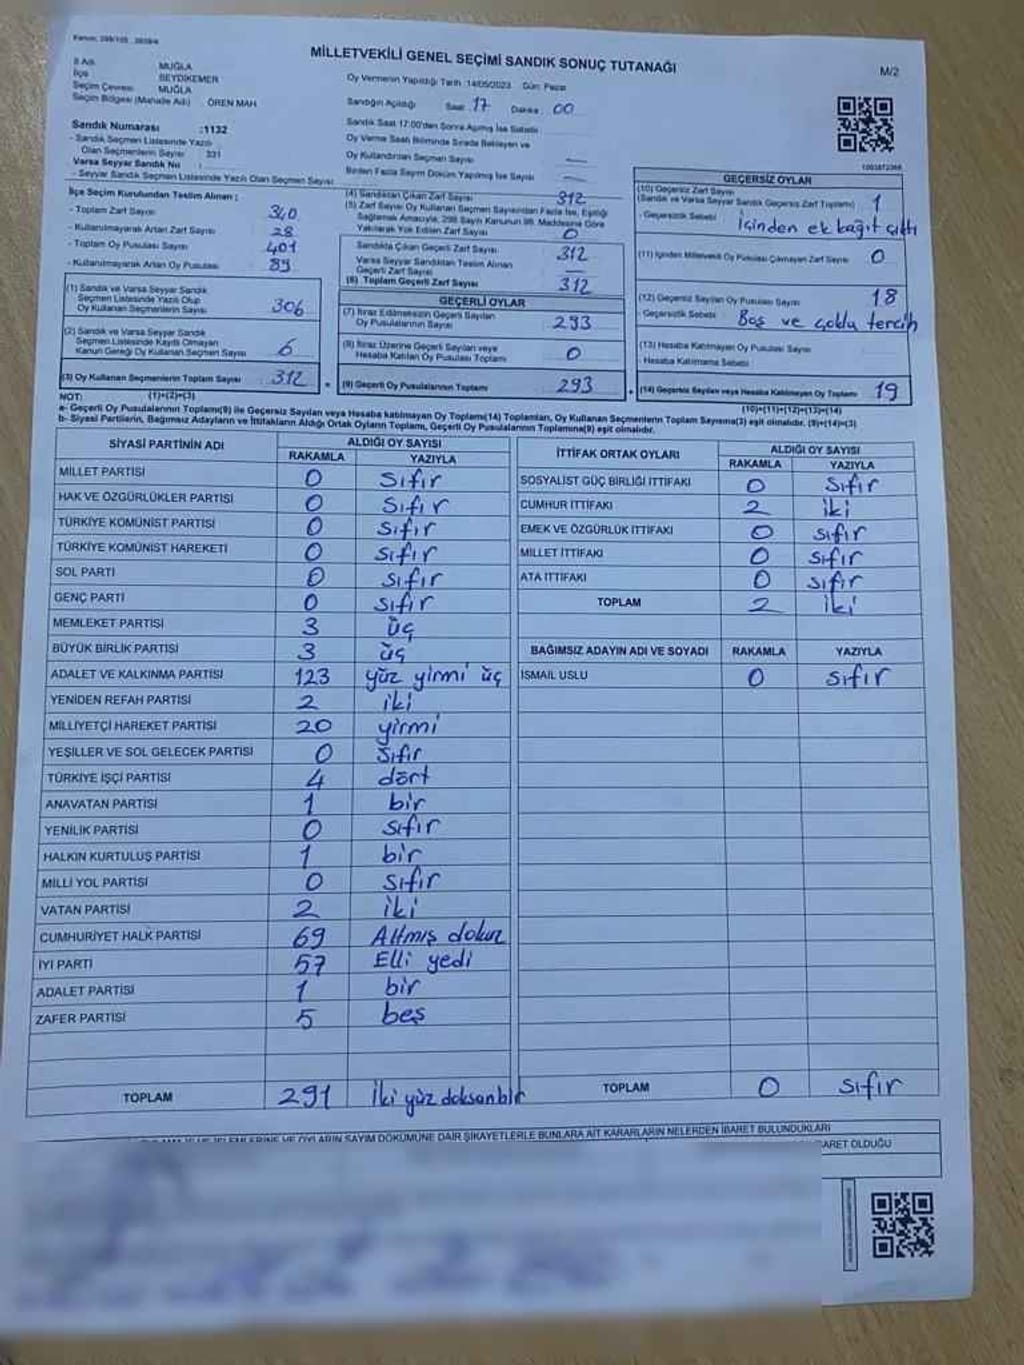 MİLLETVEKİLİ GENEL SEÇİMİ SANDIK SONUÇ TUTANAĞI
M/2
İl Adı MUĞLA
İlçe SEYDİKEMER
Seçim Çevresi MUĞLA
Seçim Bölgesi (Mahalle Adı) ÖREN MAH
Oy Vermenin Yapıldığı Tarih :14/05/2023 Gün: Pazar
Sandığın Açıldığı Saat 17 Dakika 00
Sandık Saat 17:00'den Sonra Açılmış İse Sebebi
Oy Verme Saati Bitiminde Sırada Bekleyen ve
Oy Kullandırılan Seçmen Sayısı —
Birden Fazla Sayım Döküm Yapılmış İse Sayısı —
Sandık Numarası :1132
- Sandık Seçmen Listesinde Yazılı
Olan Seçmenlerin Sayısı : 331
Varsa Seyyar Sandık No :
- Seyyar Sandık Seçmen Listesinde Yazılı Olan Seçmen Sayısı
İlçe Seçim Kurulundan Teslim Alınan :
- Toplam Zarf Sayısı 340
- Kullanılmayarak Artan Zarf Sayısı 28
- Toplam Oy Pusulası Sayısı 401
- Kullanılmayarak Artan Oy Pusulası 89
(1) Sandık ve Varsa Seyyar Sandık
Seçmen Listesinde Yazılı Olup
Oy Kullanan Seçmenlerin Sayısı 306
(2) Sandık ve Varsa Seyyar Sandık
Seçmen Listesinde Kayıtlı Olmayan
Kanun Gereği Oy Kullanan Seçmen Sayısı 6
(3) Oy Kullanan Seçmenlerin Toplam Sayısı 312
(4) Sandıktan Çıkan Zarf Sayısı 312
(5) Zarf Sayısı Oy Kullanan Seçmen Sayısından Fazla İse, Eşitliği
Sağlamak Amacıyla, 298 Sayılı Kanunun 98. Maddesine Göre
Yakılarak Yok Edilen Zarf Sayısı 0
Sandıkta Çıkan Geçerli Zarf Sayısı 312
Varsa Seyyar Sandıktan Teslim Alınan
Geçerli Zarf Sayısı —
(6) Toplam Geçerli Zarf Sayısı 312
GEÇERLİ OYLAR
(7) İtiraz Edilmeksizin Geçerli Sayılan
Oy Pusulalarının Sayısı 293
(8) İtiraz Üzerine Geçerli Sayılan veya
Hesaba Katılan Oy Pusulası Toplamı 0
(9) Geçerli Oy Pusulalarının Toplamı 293
1003872366
GEÇERSİZ OYLAR
(10) Geçersiz Zarf Sayısı
(Sandık ve Varsa Seyyar Sandık Geçersiz Zarf Toplamı) 1
- Geçersizlik Sebebi İçinden ek kağıt çıktı
(11) İçinden Milletvekili Oy Pusulası Çıkmayan Zarf Sayısı 0
(12) Geçersiz Sayılan Oy Pusulası Sayısı 18
- Geçersizlik Sebebi Boş ve çoklu tercih
(13) Hesaba Katılmayan Oy Pusulası Sayısı
- Hesaba Katılmama Sebebi
(14) Geçersiz Sayılan veya Hesaba Katılmayan Oy Toplamı 19
NOT: (1)+(2)=(3) (10)+(11)+(12)+(13)=(14)
a- Geçerli Oy Pusulalarının Toplamı(9) ile Geçersiz Sayılan veya Hesaba katılmayan Oy Toplamı(14) Toplamları, Oy Kullanan Seçmenlerin Toplam Sayısına(3) eşit olmalıdır. (9)+(14)=(3)
b- Siyasi Partilerin, Bağımsız Adayların ve İttifakların Aldığı Ortak Oyların Toplamı, Geçerli Oy Pusulalarının Toplamına(9) eşit olmalıdır.
SİYASİ PARTİNİN ADI ALDIĞI OY SAYISI
RAKAMLA YAZIYLA
MİLLET PARTİSİ 0 Sıfır
HAK VE ÖZGÜRLÜKLER PARTİSİ 0 Sıfır
TÜRKİYE KOMÜNİST PARTİSİ 0 sıfır
TÜRKİYE KOMÜNİST HAREKETİ 0 sıfır
SOL PARTİ 0 sıfır
GENÇ PARTİ 0 sıfır
MEMLEKET PARTİSİ 3 üç
BÜYÜK BİRLİK PARTİSİ 3 üç
ADALET VE KALKINMA PARTİSİ 123 yüz yirmi üç
YENİDEN REFAH PARTİSİ 2 iki
MİLLİYETÇİ HAREKET PARTİSİ 20 yirmi
YEŞİLLER VE SOL GELECEK PARTİSİ 0 Sıfır
TÜRKİYE İŞÇİ PARTİSİ 4 dört
ANAVATAN PARTİSİ 1 bir
YENİLİK PARTİSİ 0 sıfır
HALKIN KURTULUŞ PARTİSİ 1 bir
MİLLİ YOL PARTİSİ 0 sıfır
VATAN PARTİSİ 2 iki
CUMHURİYET HALK PARTİSİ 69 Altmış dokuz
İYİ PARTİ 57 Elli yedi
ADALET PARTİSİ 1 bir
ZAFER PARTİSİ 5 beş
TOPLAM 291 İki yüz doksanbir
İTTİFAK ORTAK OYLARI ALDIĞI OY SAYISI
RAKAMLA YAZIYLA
SOSYALİST GÜÇ BİRLİĞİ İTTİFAKI 0 Sıfır
CUMHUR İTTİFAKI 2 iki
EMEK VE ÖZGÜRLÜK İTTİFAKI 0 sıfır
MİLLET İTTİFAKI 0 sıfır
ATA İTTİFAKI 0 sıfır
TOPLAM 2 iki
BAĞIMSIZ ADAYIN ADI VE SOYADI RAKAMLA YAZIYLA
İSMAİL USLU 0 sıfır
TOPLAM 0 sıfır
OYLARIN SAYIM DÖKÜMÜNE DAİR ŞİKAYETLERLE BUNLARA AİT KARARLARIN NELERDEN İBARET BULUNDUKLARI
OLDUĞU